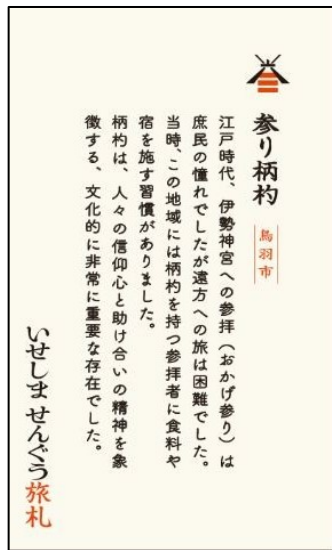 参り柄杓 鳥羽市
江戸時代、伊勢神宮への参拝（おかげ参り）は
庶民の憧れでしたが遠方への旅は困難でした。
当時、この地域には柄杓を持つ参拝者に食料や
宿を施す習慣がありました。
柄杓は、人々の信仰心と助け合いの精神を象
徴する、文化的に非常に重要な存在でした。
いせしま せんぐう旅札